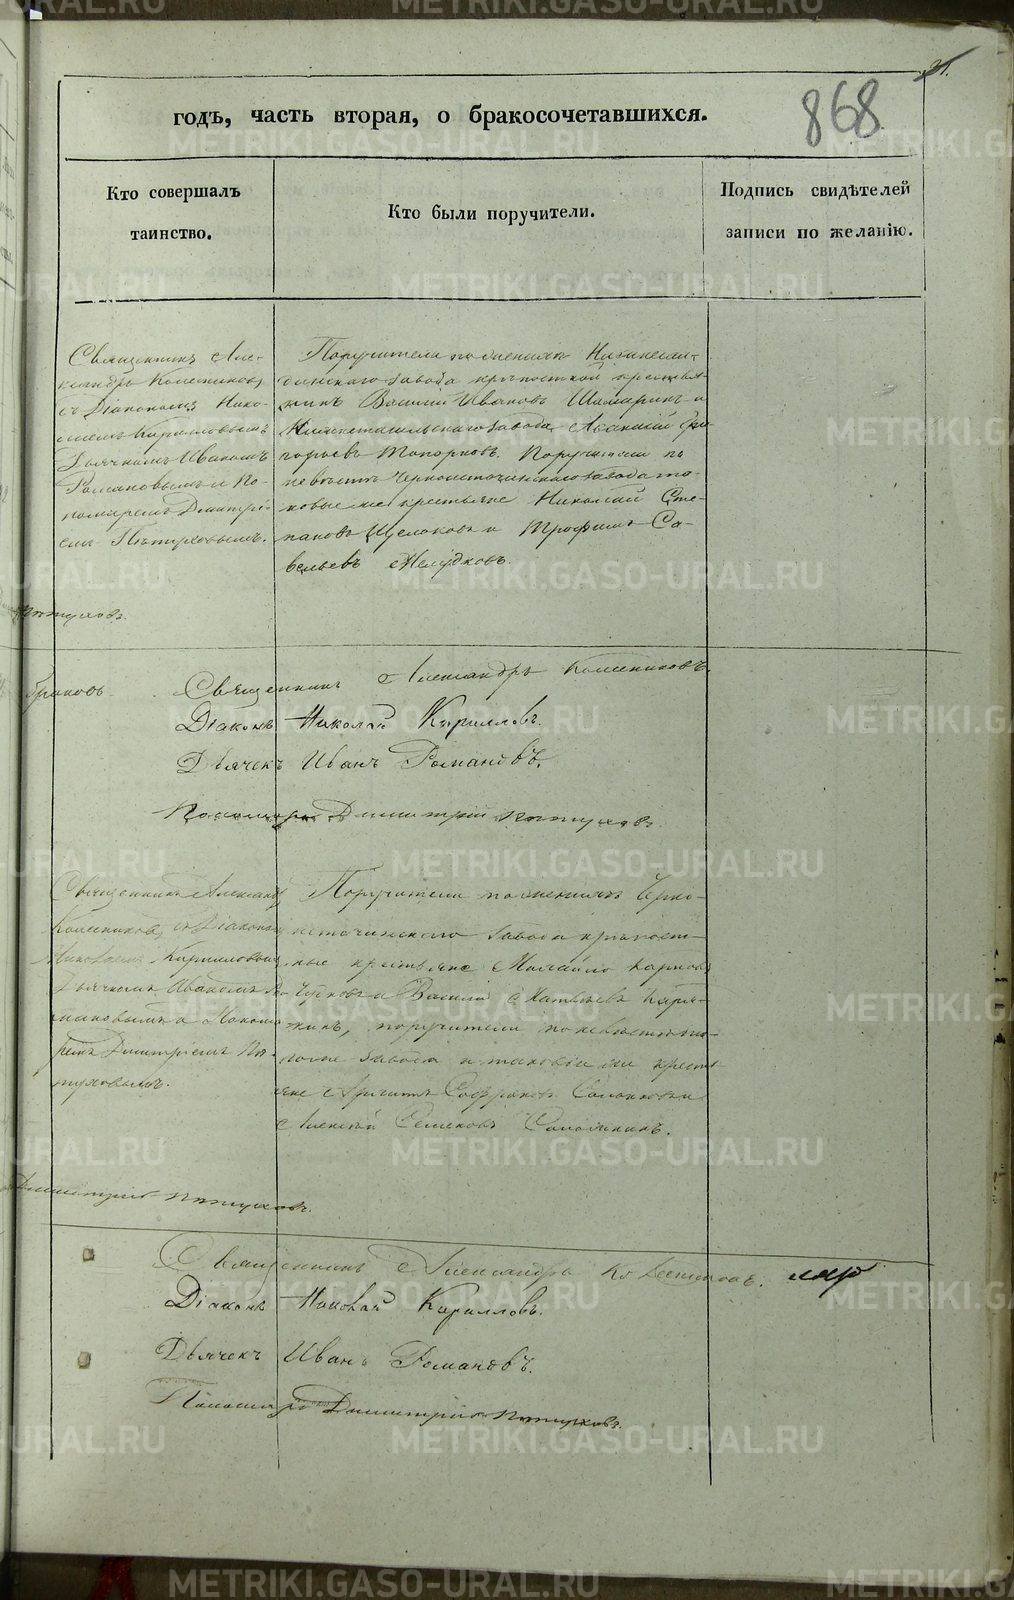 31.
868
годъ, часть вторая, о бракосочетавшихся.
Кто совершалъ
таинство.
Кто были поручители.
Подпись свидѣтелей
записи по желанію.
Священникъ Але-
ксандръ Колесниковъ,
съ Діакономъ Нико-
лаемъ Кирилловымъ
Дьячкомъ Иваномъ
Романовымъ и По-
номаремъ Дмитрі-
емъ Пѣтуховымъ.
Поручители по женихѣ Нижнесал-
динскаго завода крѣпостной крестья-
нинъ Василій Ивановъ Шамаринъ и
Нижнетагильскаго завода Афанасій Гри-
горьевъ Топорковъ. Поручители по
невѣстѣ Черноисточинскаго завода та-
ковые же крестьяне Николай Сте-
пановъ Щелоковъ и Трофимъ Са-
вельевъ Желудковъ.
Пѣтуховъ.
браковъ.
Священникъ Александръ Колесниковъ.
Діаконъ Николай Кирилловъ.
Дьячекъ Иванъ Романовъ.
Пономарь Димитрій Пѣтуховъ.
Священникъ Александръ
Колесниковъ, съ Діакономъ
Николаемъ Кирилловымъ
Дьячкомъ Иваномъ Ро-
мановымъ и Понома-
ремъ Дмитріемъ Пѣ-
туховымъ.
Поручители по женихѣ Черно-
источинскаго завода крѣпост-
ные крестьяне Михайло Карповъ
и Василій Матвѣевъ
поручители по невѣстѣ то-
гоже завода и таковые же крестья-
не
Алексѣй Семеновъ
Димитрій Пѣтуховъ.
Священникъ Александръ Колесниковъ.
Діаконъ Николай Кирилловъ.
Дьячекъ Иванъ Романовъ.
Пономарь Димитрій Пѣтуховъ.
METRIKI.GASO-URAL.RU